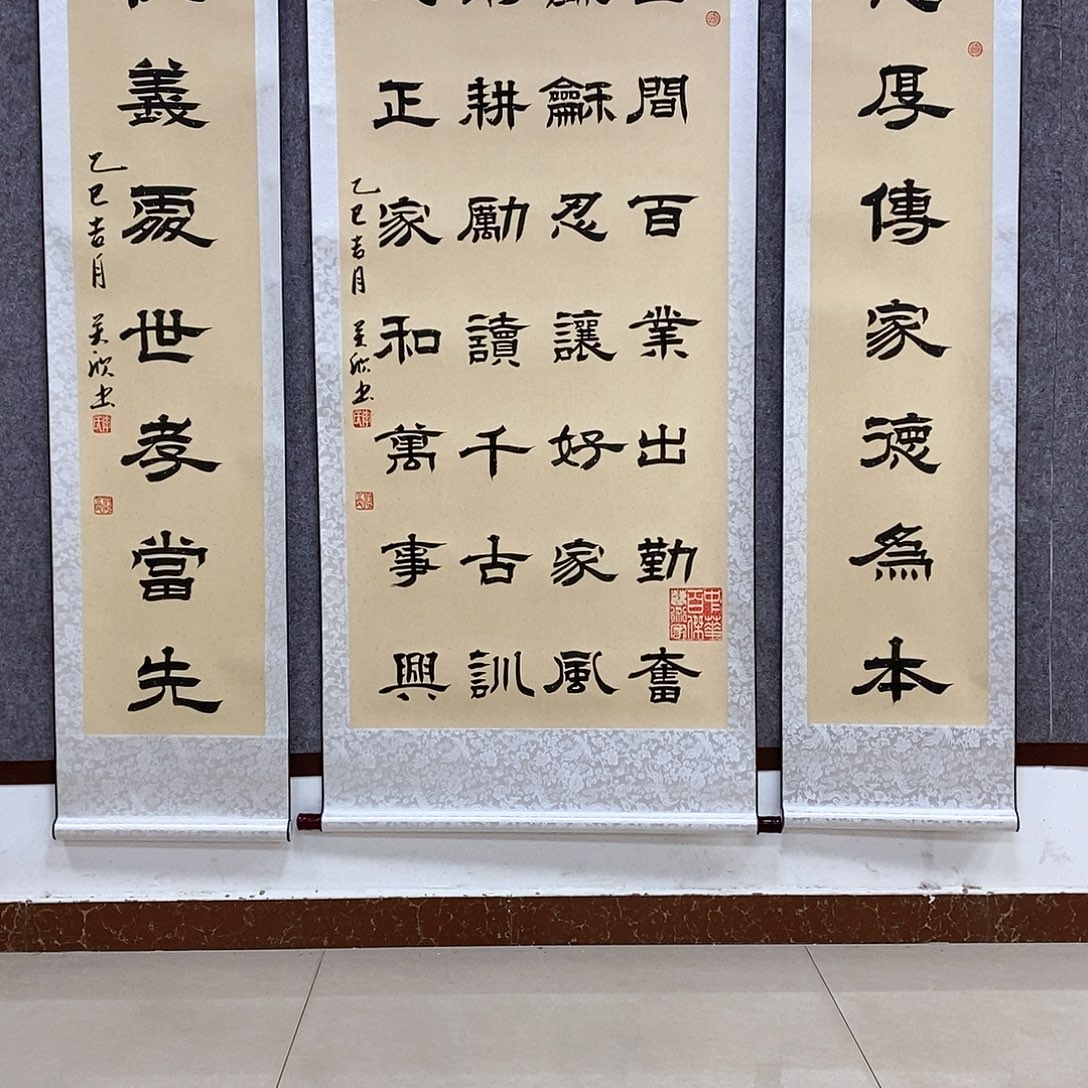 厚傳家德為本
間百業出勤奮
龢忍讓好家風
耕勵讀千古訓
正家和萬事興
乙巳吉月 欣书
中華
百傑
義處世孝當先
乙巳吉月 欣书